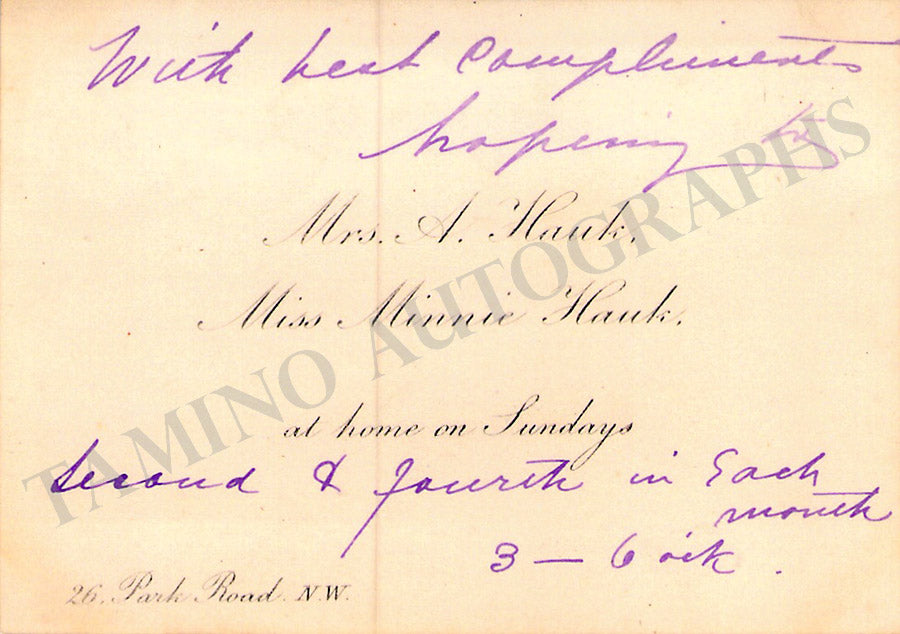 With best Compliments
hoping to
Mrs. A. Hauk.
Miss Minnie Hauk.
TAMINO AUTOGRAPHS
at home on Sundays
Second & fourth in Each
month
3 – 6 o'clk.
26, Park Road. N.W.